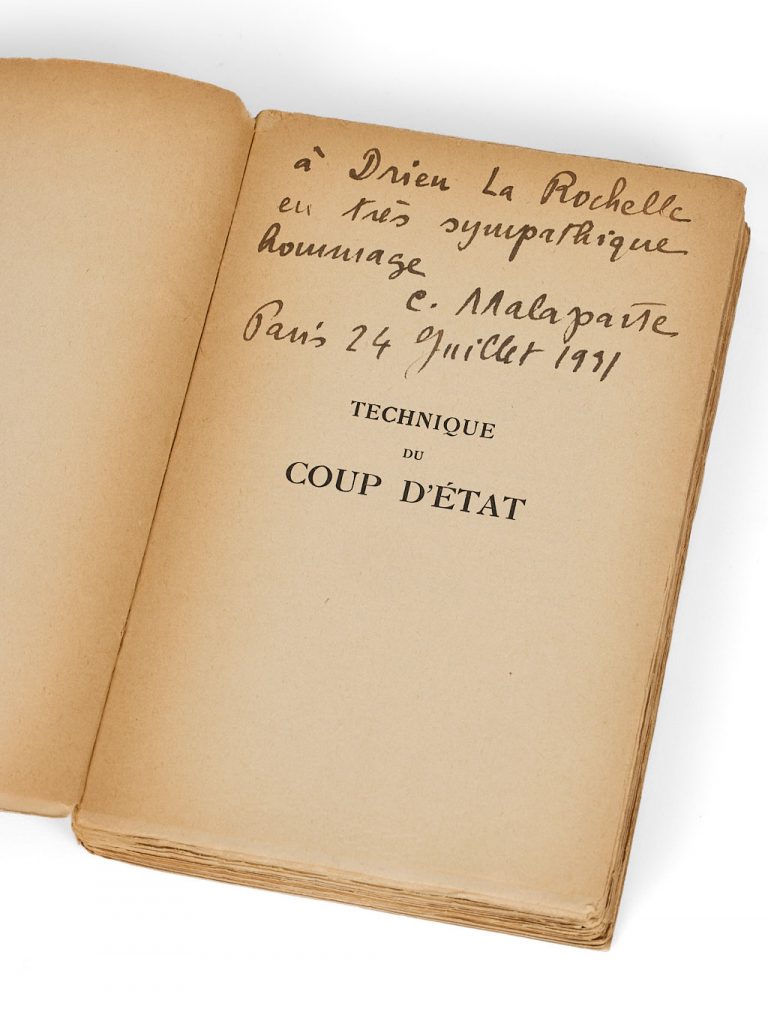 à Drieu La Rochelle
en très sympathique
hommage
C. Malaparte
Paris 24 Juillet 1931
TECHNIQUE
DU
COUP D'ÉTAT